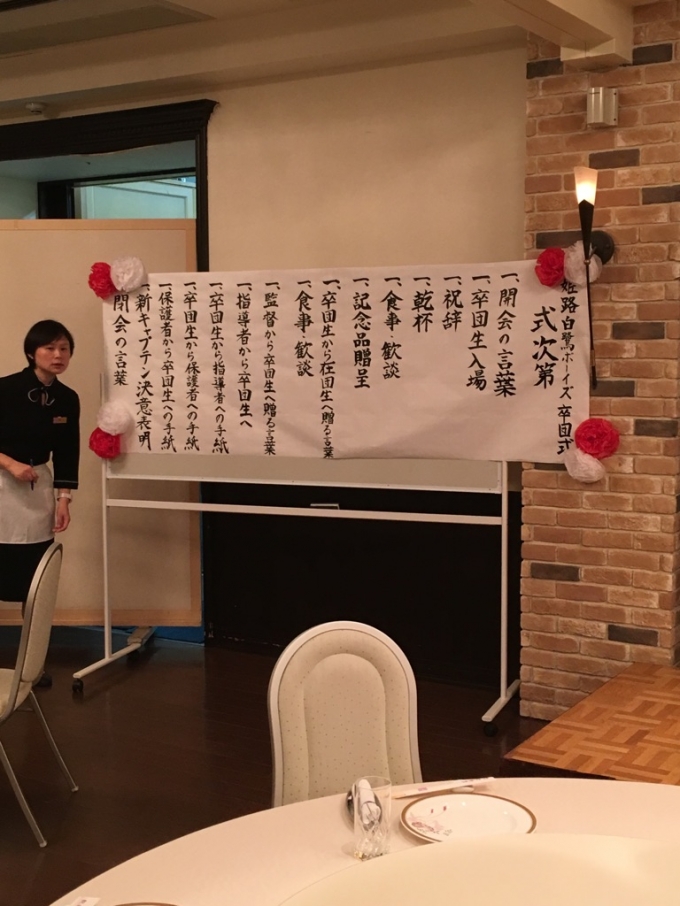 姫路白鷺ボーイズ 卒団式
式次第
一、開会の言葉
一、卒団生入場
一、祝辞
一、乾杯
一、食事・歓談
一、記念品贈呈
一、卒団生から在団生へ贈る言葉
一、食事・歓談
一、監督から卒団生へ贈る言葉
一、指導者から卒団生へ
一、卒団生から指導者への手紙
一、卒団生から保護者への手紙
一、保護者から卒団生への手紙
一、新キャプテン決意表明
一、閉会の言葉